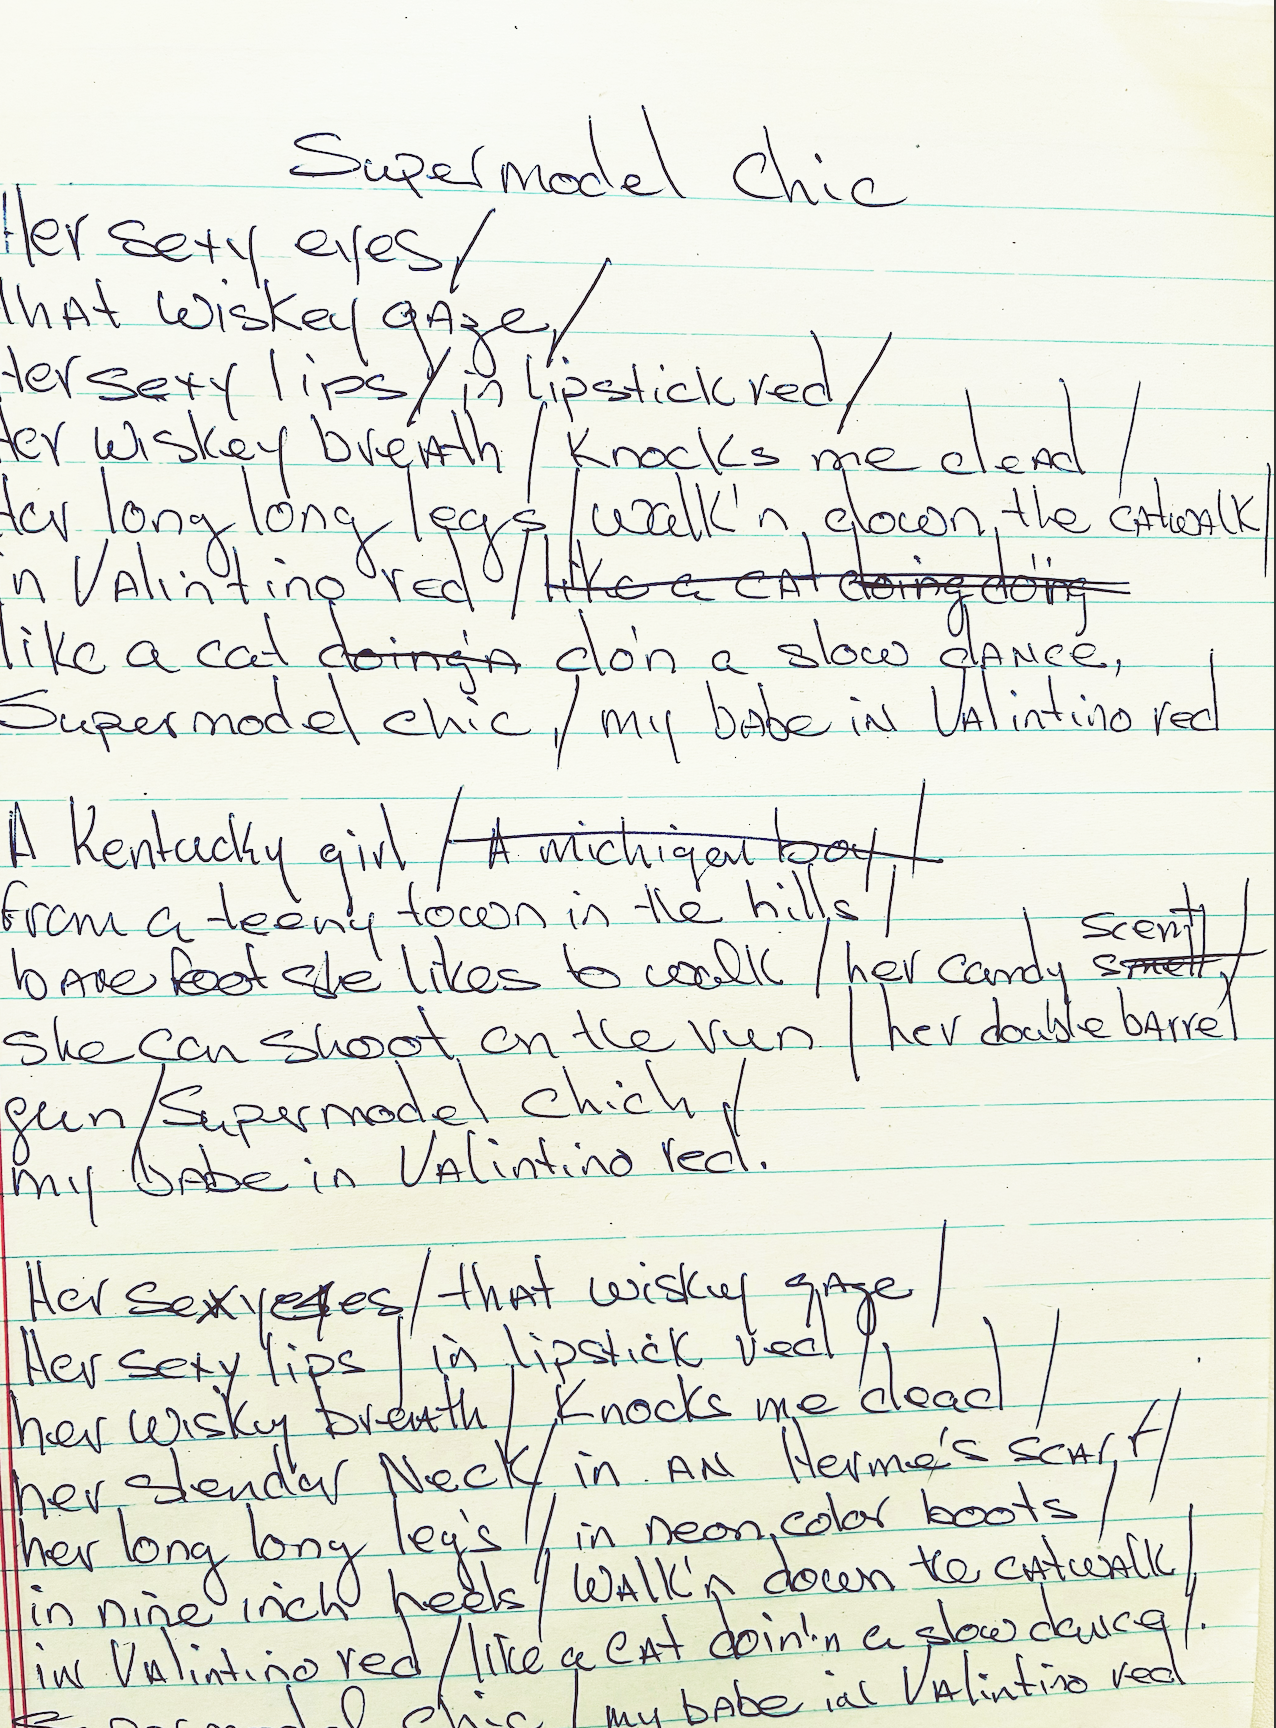 Supermodel Chic
Her sexy eyes,/
that wiskey gaze,/
Her sexy lips,/ in lipstick red/
Her wiskey breath/ Knocks me dead/
Her long long legs,/ walk'n down the catwalk/
in Valintino red/ like a cat doing doing
like a cat doing'n do'n a slow dance,
Supermodel chic,/ my babe in Valintino red
A Kentucky girl/ A michigan boy,/
from a teeny town in the hills/
scent
bare foot she likes to walk/ her candy smell,/
she can shoot on the run/ her double barrel
gun/ Supermodel Chich,/
my babe in Valintino red.
Her sexy eyes/ that wisky gaze/
Her sexy lips/ in lipstick red/
her wisky breath/ Knocks me dead/
her slendar Neck/ in AN Herme's scarf/
her long long leg's/ in neon color boots/
in nine inch heels/ Walk'n down the catwalk/
in Valintino red/ like a cat doin'n a slow dance/.
Supermodel chic/ my babe in Valintino red